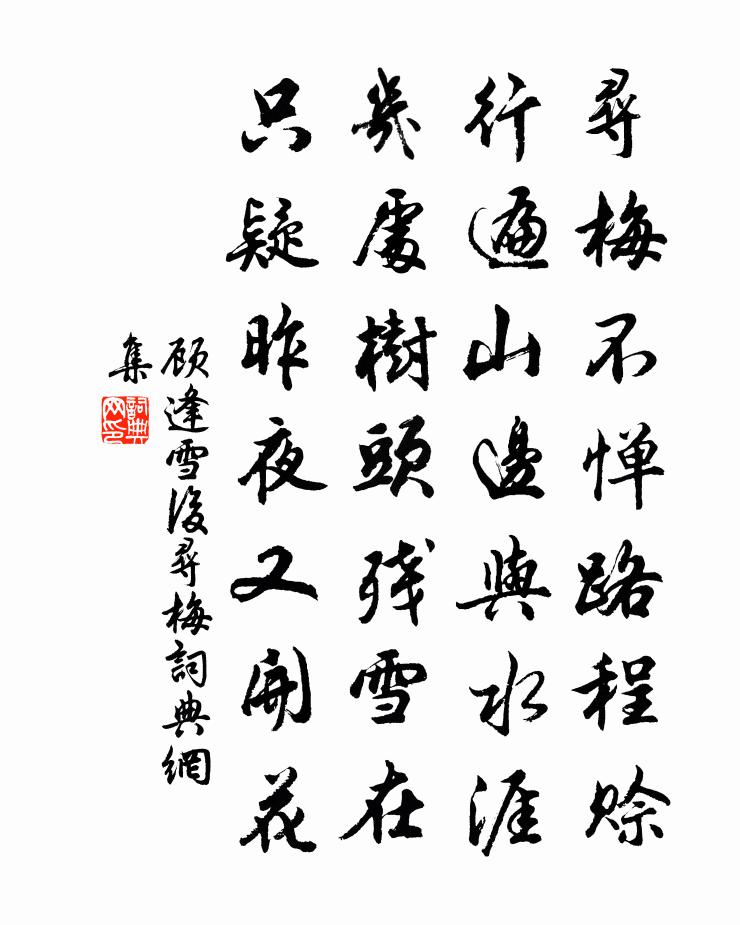 尋梅不惮路程赊
行遍山邊與水涯
幾處樹頭殘雪在
只疑昨夜又開花
顾逢雪後尋梅詞典網
集
詞典网印